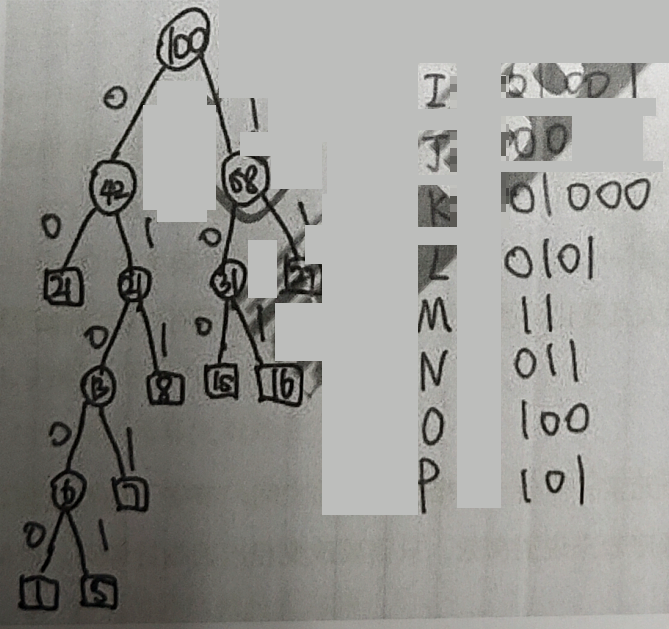 100
0 1
42 58
0 1 0 1
21 21 31 27
0 1 0 1
13 8 15 16
0 1
6 7
0 1
1 5
I 01001
J 00
K 01000
L 0101
M 11
N 011
O 100
P 101